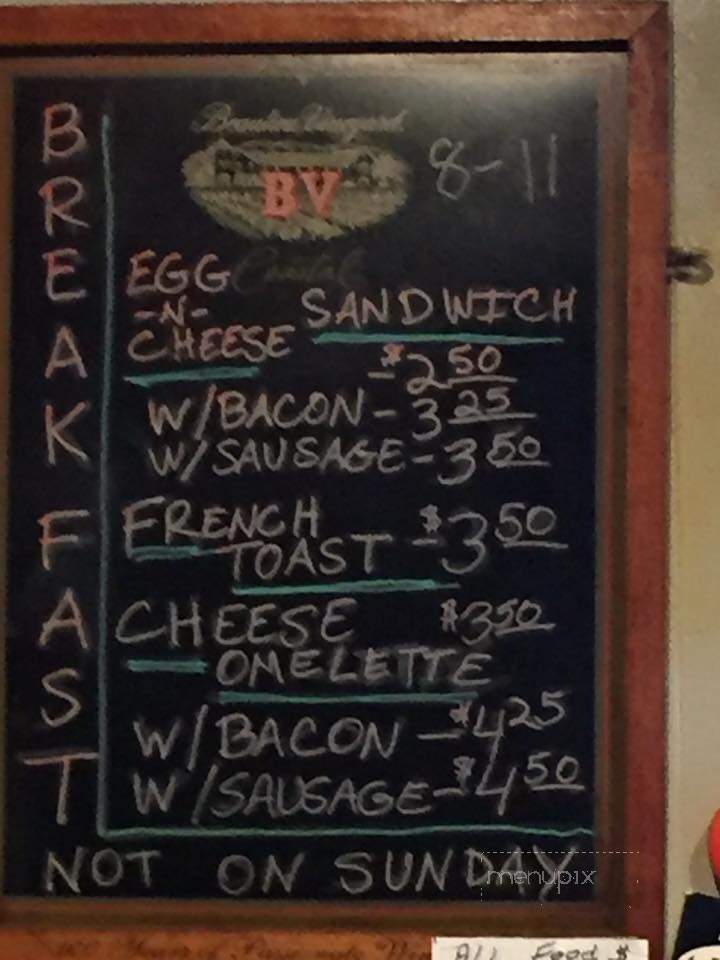 BREAKFAST
BV
8-11
EGG
-N-
CHEESE
SANDWICH
-$2.50
W/BACON-3 25
W/SAUSAGE-3 50
FRENCH
TOAST -$3 50
CHEESE $3 50
OMELETTE
W/BACON -$4 25
W/SAUSAGE-$4 50
NOT ON SUNDAY
menupix
ALL Food $